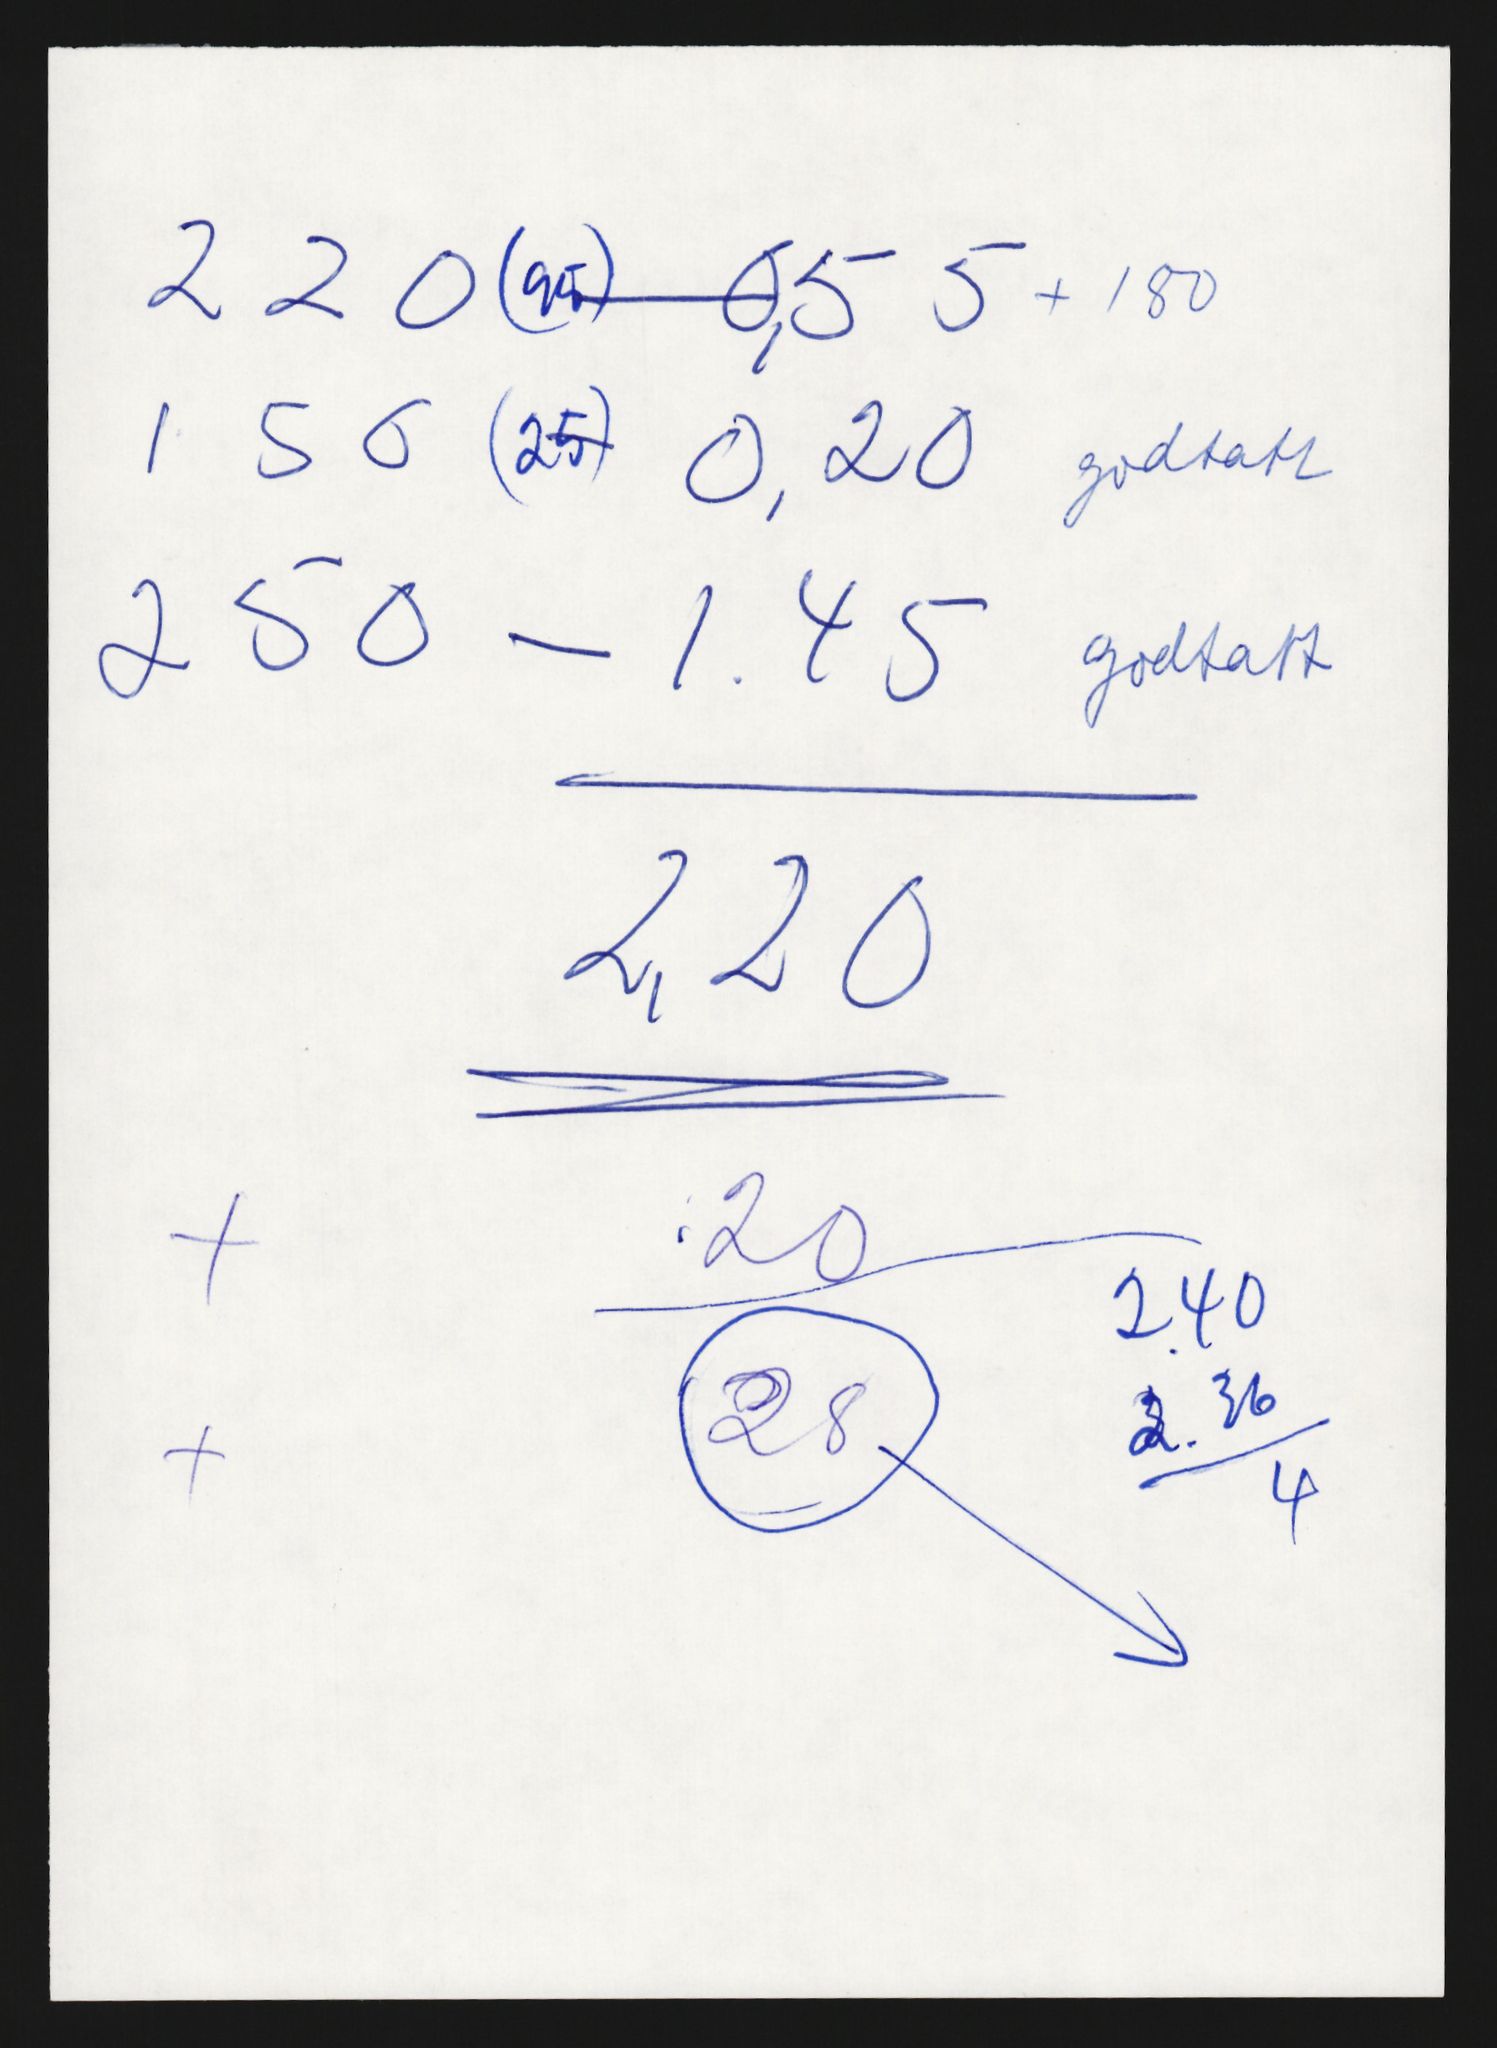 220 (95) — 0,55 + 180
156 (25) 0,20 godtatt
250 — 1.45 godtatt
2,20
+ .20
2.40
+ 28
2.36
4